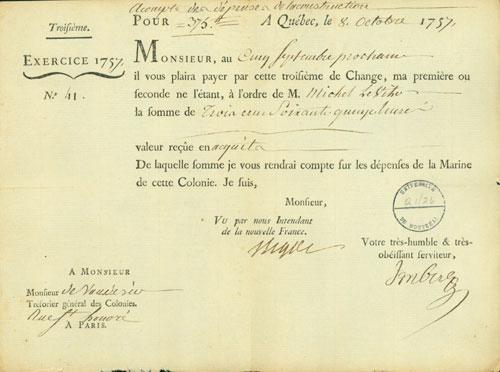 Acompte des dépenses de la construction
Troisième.
POUR 375.ᵗᵗ A Québec, le 8. Octobre 1757.
EXERCICE 1757.
N.º 41.
MONSIEUR, au Cinq Septembre prochain
il vous plaira payer par cette troisième de Change, ma première ou
seconde ne l'étant, à l'ordre de M. Michel
la somme de Trois cent Soixante quinze livres
valeur reçue en acquits
De laquelle somme je vous rendrai compte sur les dépenses de la Marine
de cette Colonie. Je suis,
Monsieur,
VU par nous Intendant
de la nouvelle France.
Bigot
UNIVERSITÉ
DE MONTRÉAL
Votre très-humble & très-
obéissant serviteur,
Imbert
A MONSIEUR
Monsieur
Trésorier général des Colonies.
Rue St honoré
A PARIS.